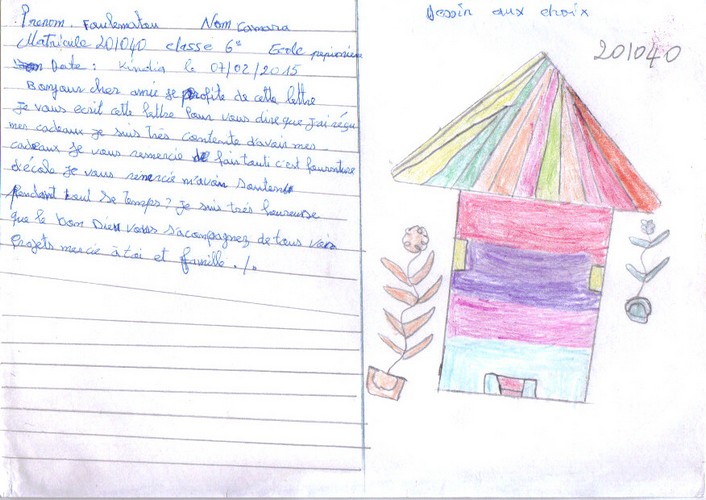 Prenom. Foulematou Nom Camara
Matricule 201040 classe 6e Ecole pepinière
Date : Kindia le 07/02/2015
Bonjour cher amie je profite de cette lettre
Je vous ecrit cette lettre Pour vous dire que J'ai réçu
mes cadeaux je suis très contente d'avoir mes
cadeaux Je vous remercie de fair tauti c'est fourniture
d'école Je vous remercie m'avoir soutenu
Pendant tout se Temps? Je suis très heureuse
que le bon Dieu vous s'accompagnez de tous vois
Projets mercie à toi et famille ./.
Dessin aux choix
201040